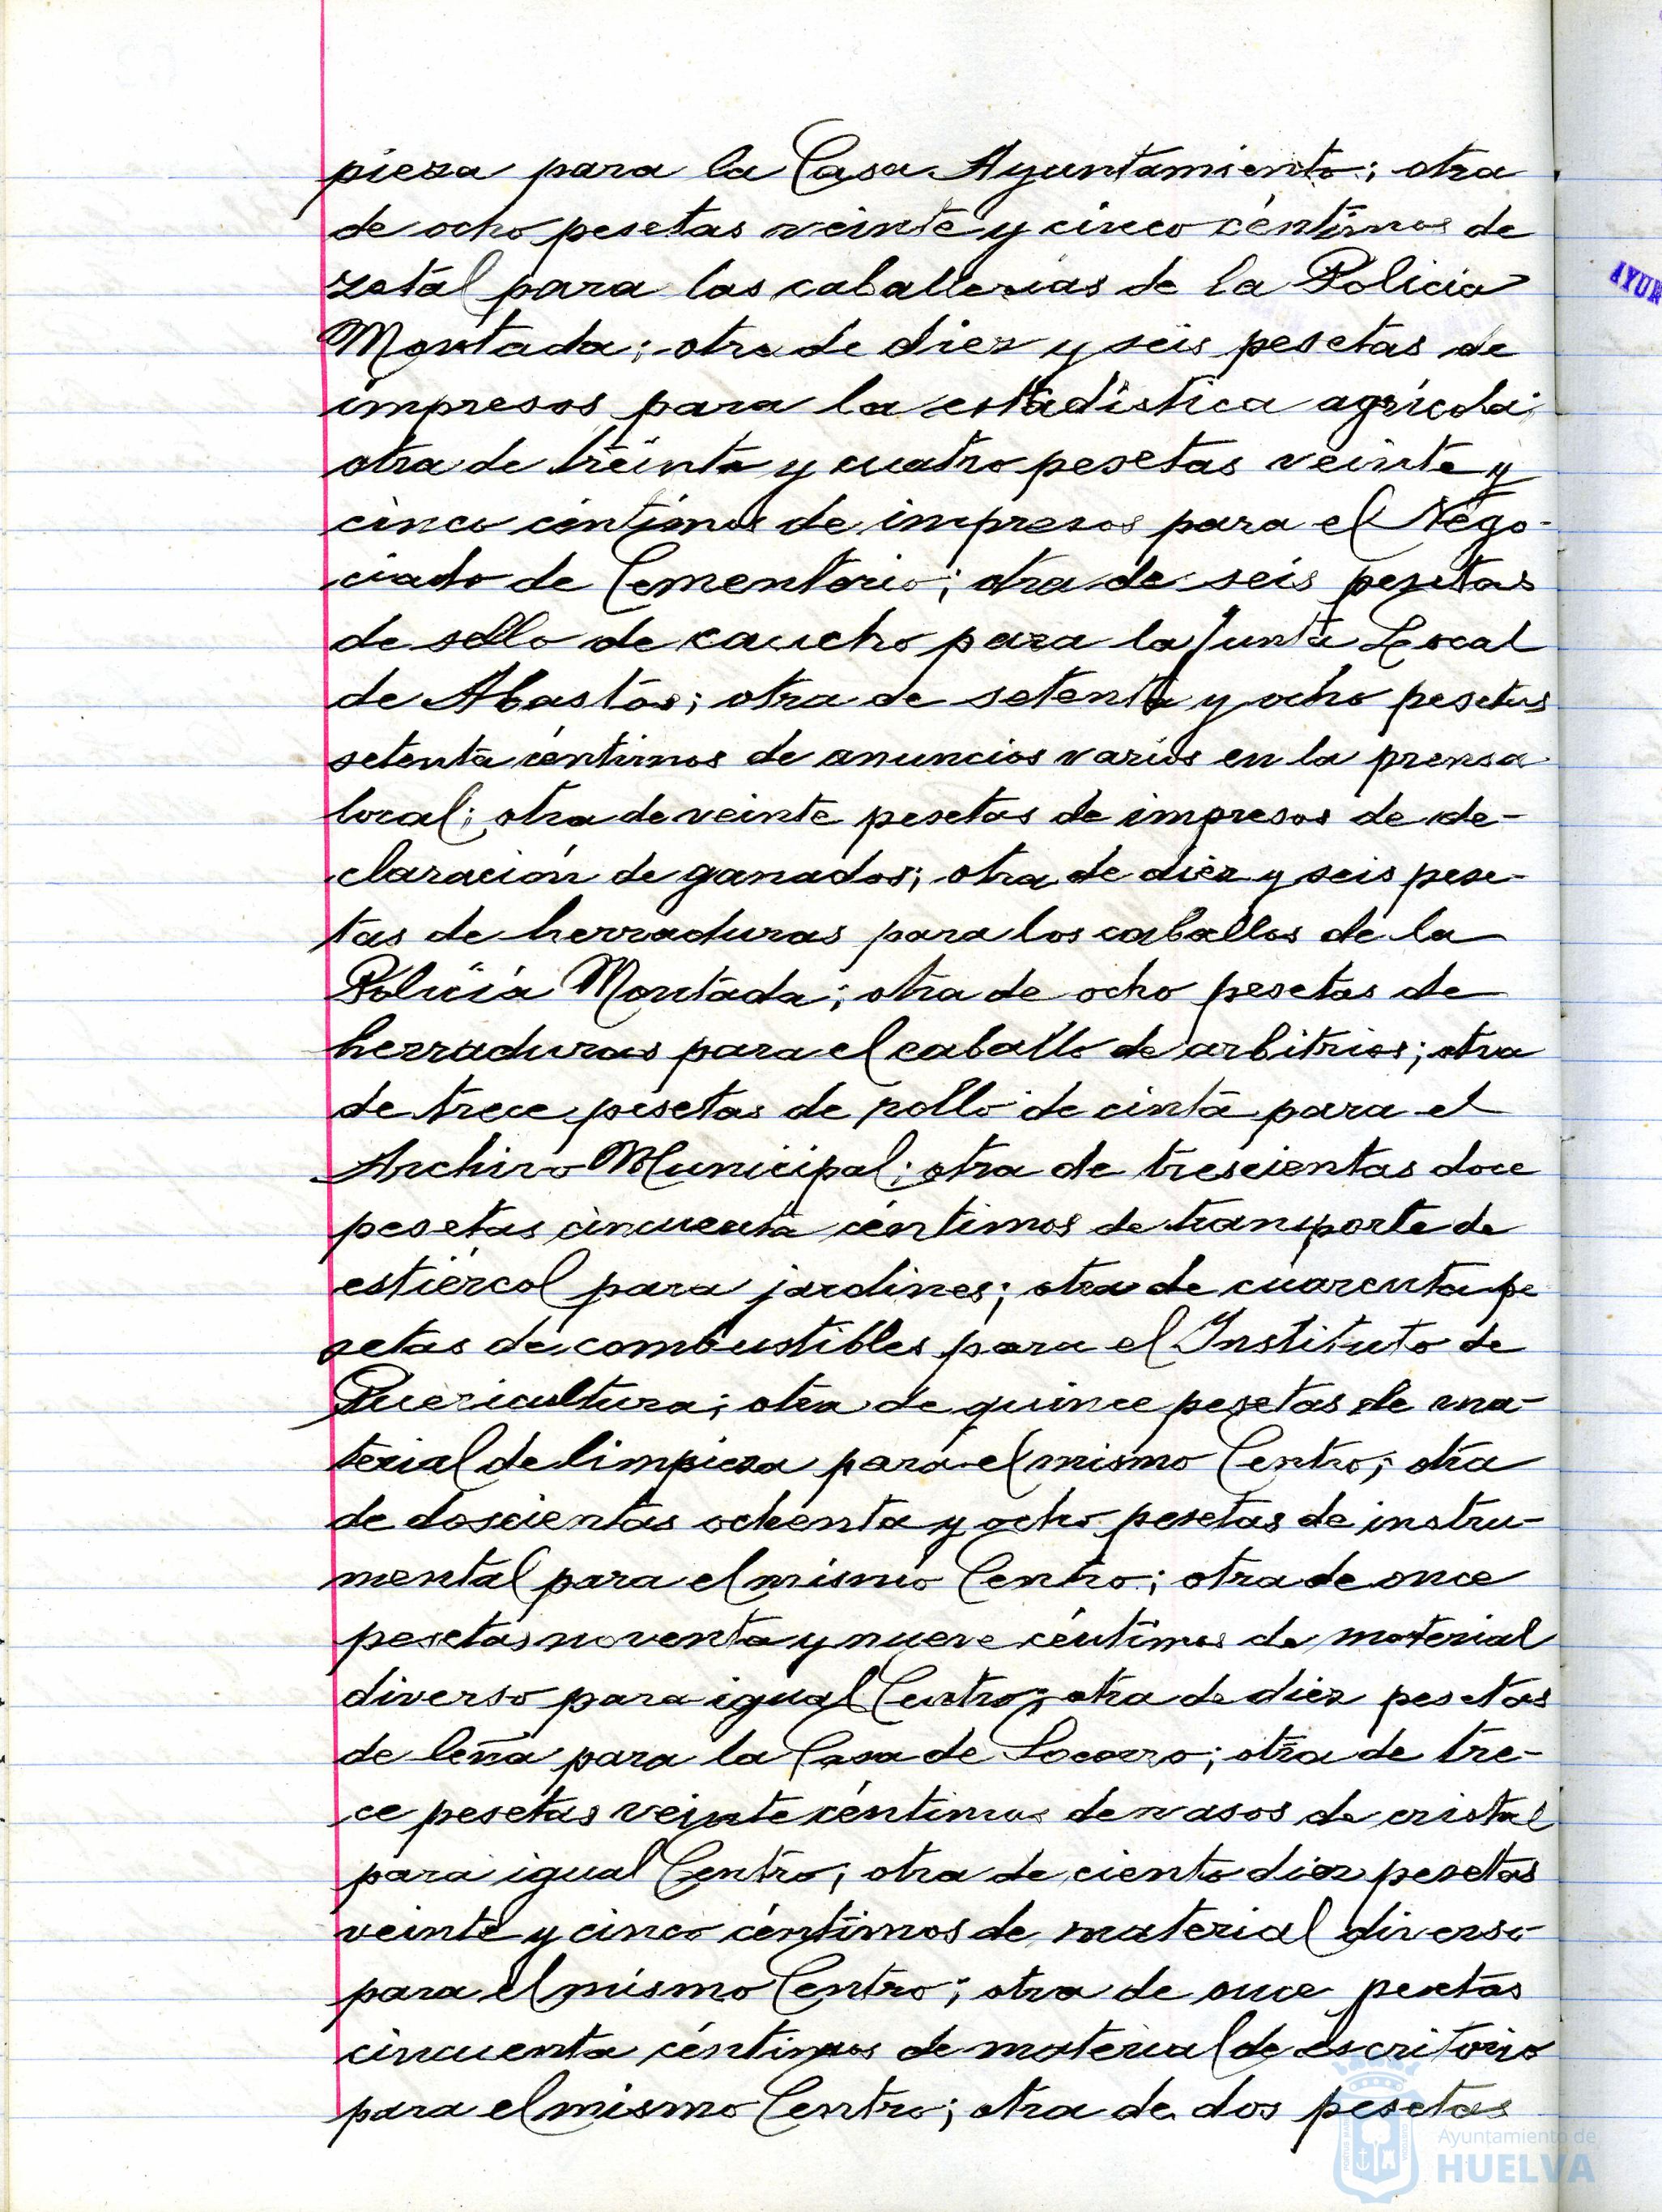 pieza para la Casa Ayuntamiento; otra
de ocho pesetas veinte y cinco céntimos de
zotál para las caballerias de la Policia
Montada; otra de diez y seis pesetas de
impresos para la estadistica agrícola;
otra de treinta y cuatro pesetas veinte y
cinco céntimos de impresos para el Nego-
ciado de Cementerio; otra de seis pesetas
de sello de caucho para la Junta Local
de Abastos; otra de setenta y ocho pesetas
setenta céntimos de anuncios varios en la prensa
local; otra de veinte pesetas de impresos de de-
claración de ganados; otra de diez y seis pese-
tas de herraduras para los caballos de la
Policía Montada; otra de ocho pesetas de
herraduras para el caballo de arbitrios; otra
de trece pesetas de rollo de cinta para el
Archivo Municipal; otra de trescientas doce
pesetas cincuenta céntimos de transporte de
estiércol para jardines; otra de cuarenta pe
setas de combustibles para el Instituto de
Puericultura; otra de quince pesetas de ma-
terial de limpieza para el mismo Centro; otra
de doscientas ochenta y ocho pesetas de instru-
mental para el mismo Centro; otra de once
pesetas noventa y nueve céntimos de material
diverso para igual Centro; otra de diez pesetas
de leña para la Casa de Socorro; otra de tre-
ce pesetas veinte céntimos de vasos de cristal
para igual Centro; otra de ciento diez pesetas
veinte y cinco céntimos de material diverso
para el mismo Centro; otra de once pesetas
cincuenta céntimos de material de escritorio
para el mismo Centro; otra de dos pesetas
AYUN
Ayuntamiento de
HUELVA